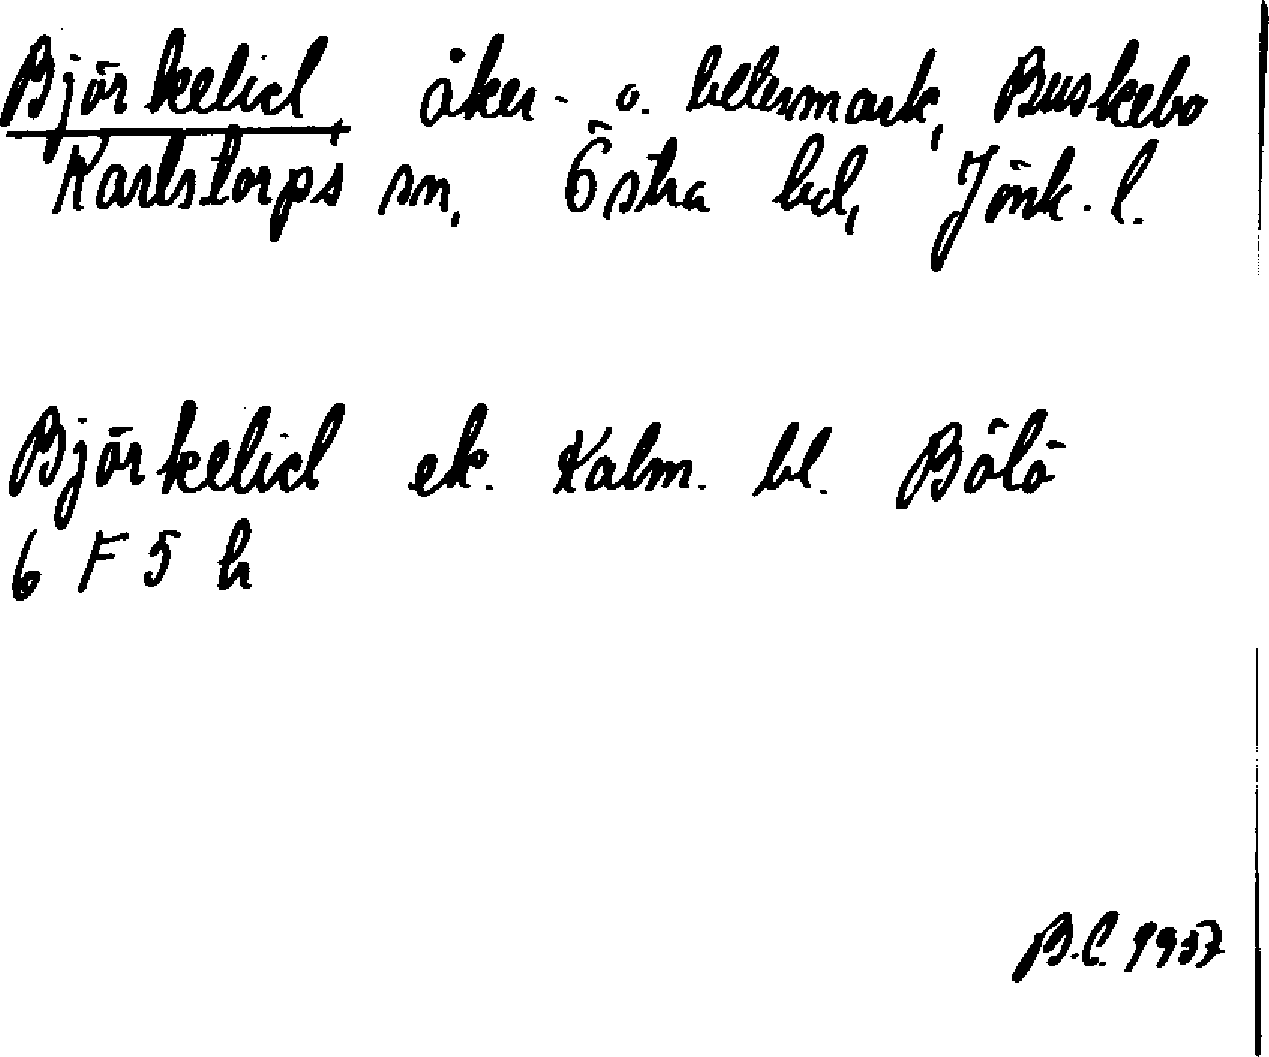 Björkelid, åker- o. betesmark, Buskebo
Karlstorps sn, Östra hd, Jönk. l.
Björkelid ek. Kalm. bl. Bölö
6 F 5 h
B.C. 1957